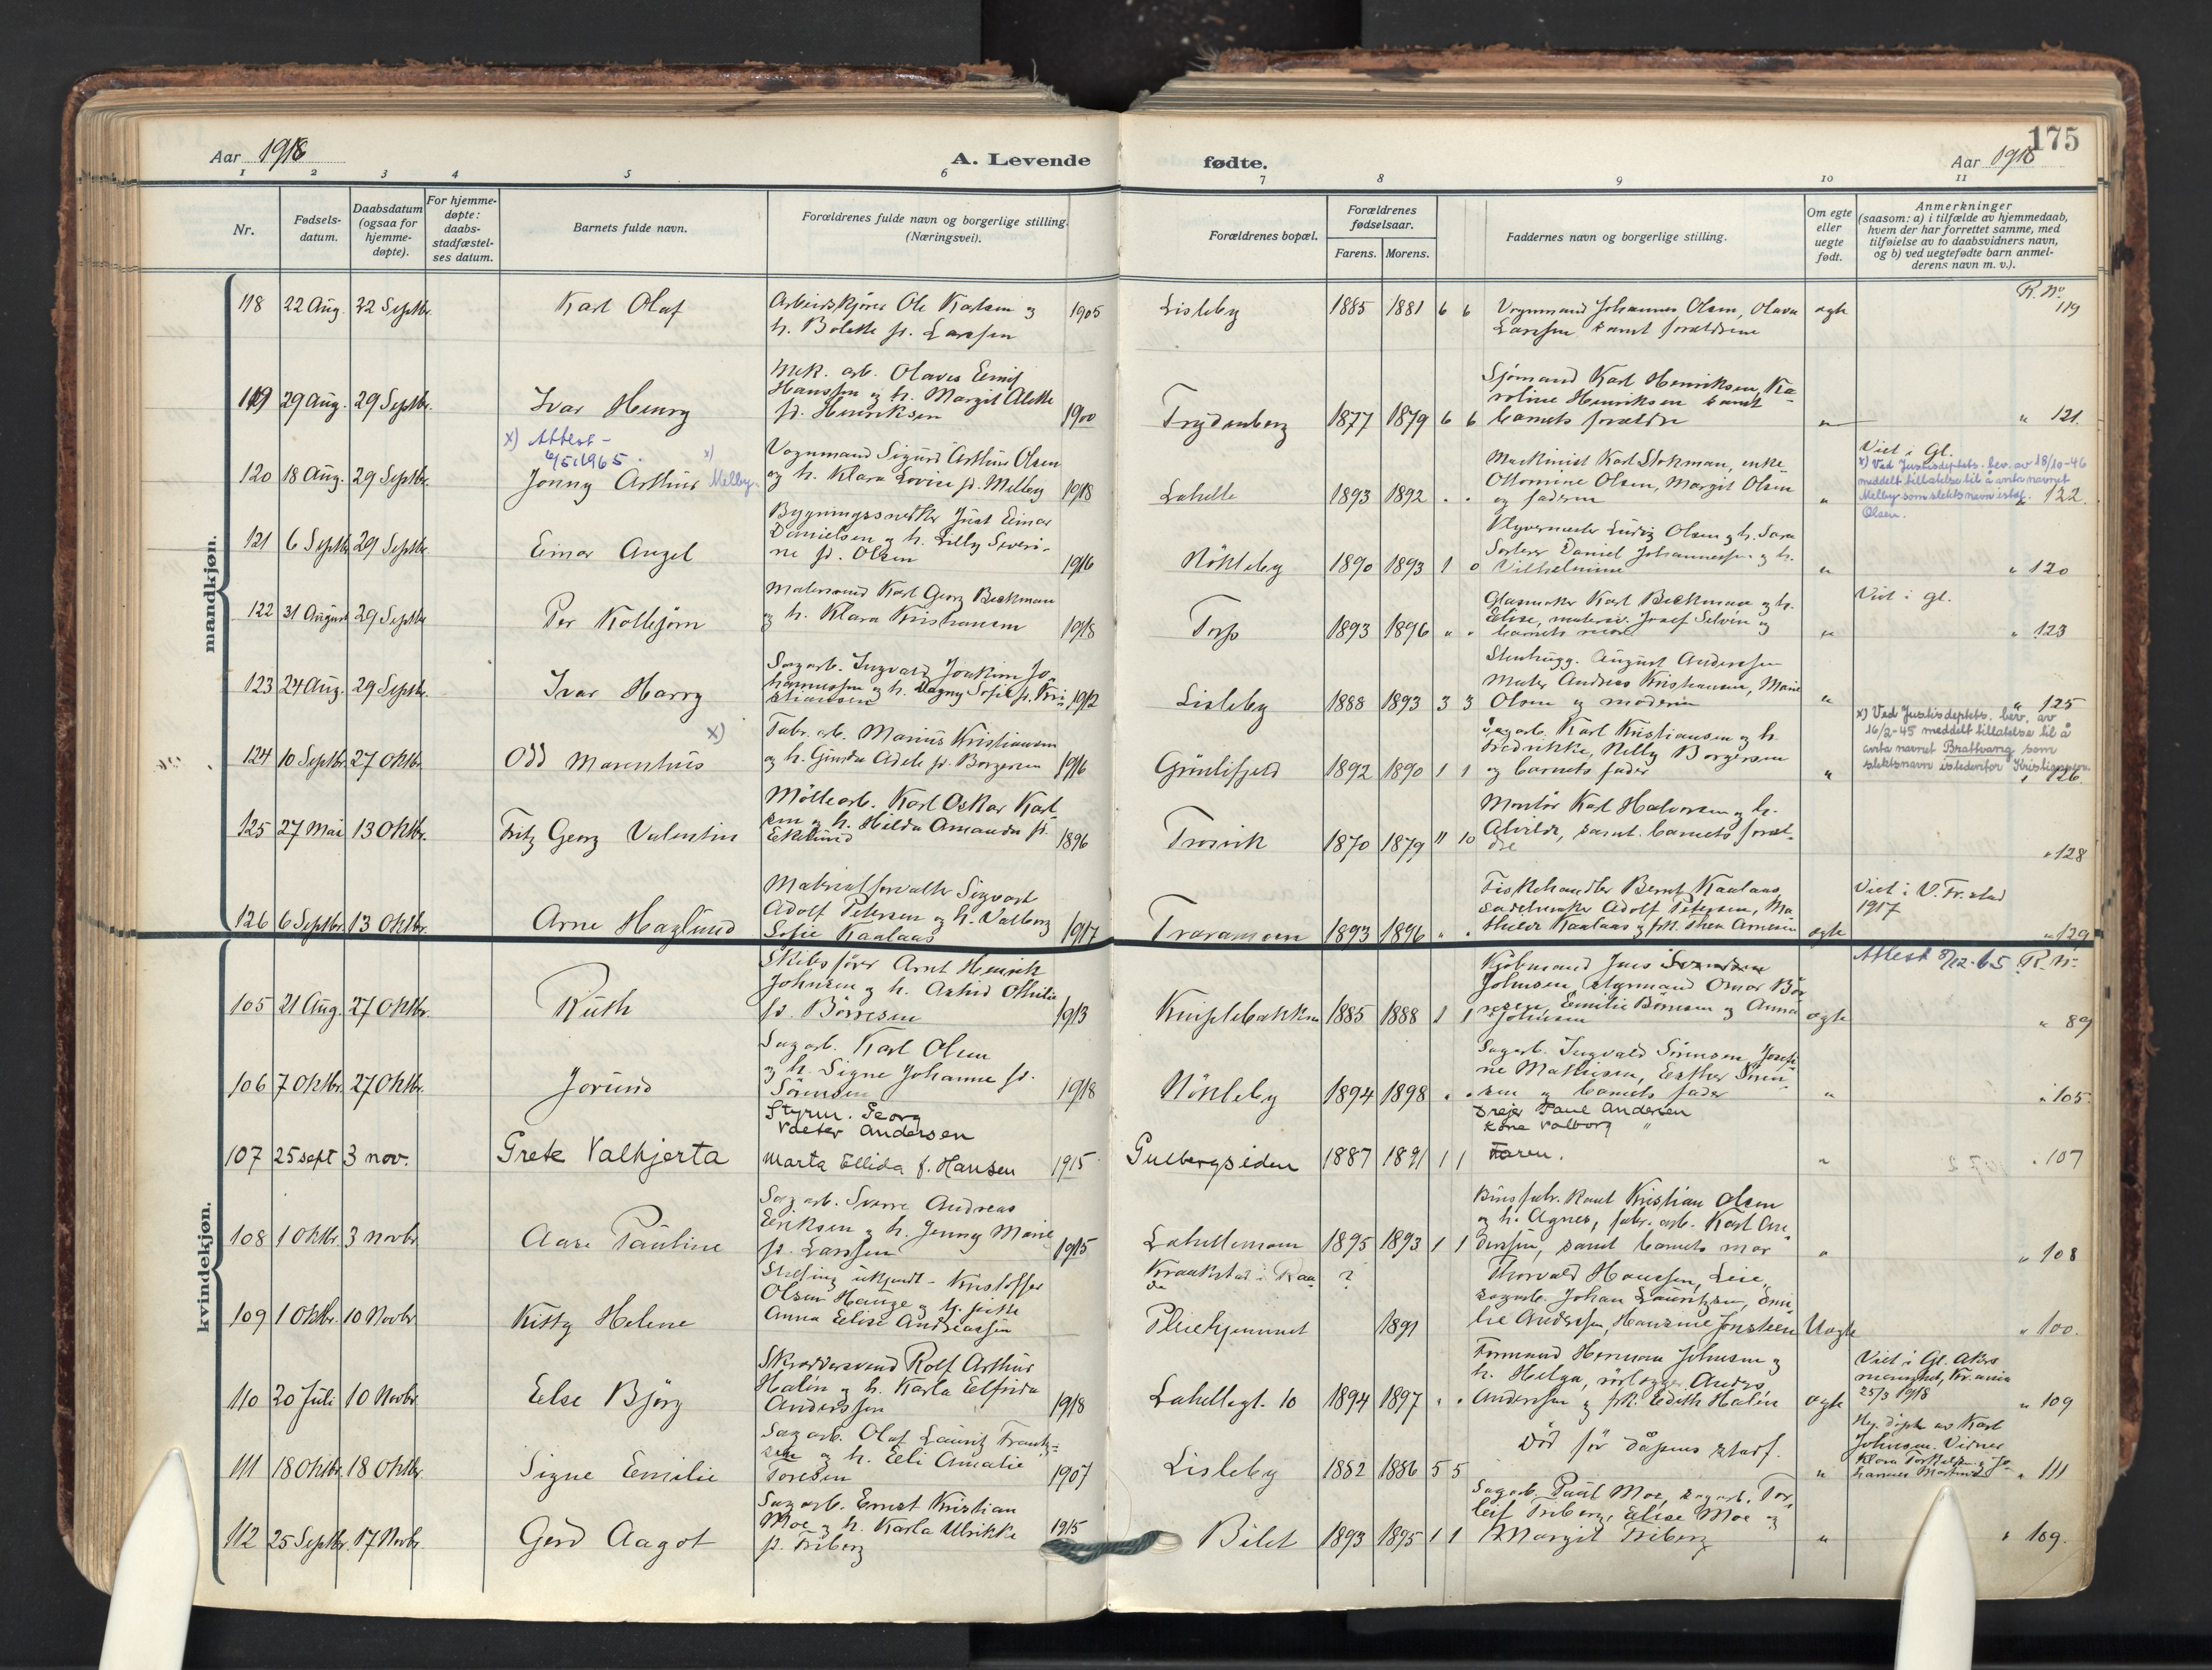 175
Aar 1918
A. Levende
fødte.
Aar 1918
1 2 3 4 5 6 7 8 9 10 11
Nr.
Fødsels-
datum.
Daabsdatum
(ogsaa for
hjemme-
døpte).
For hjemme-
døpte:
daabs-
stadfæstel-
ses datum.
Barnets fulde navn.
Forældrenes fulde navn og borgerlige stilling.
(Næringsvei).
Forældrenes bopæl.
Forældrenes
fødselsaar.
Farens. Morens.
Faddernes navn og borgerlige stilling.
Om egte
eller
uegte
født.
Anmerkninger
(saasom: a) i tilfælde av hjemmedaab,
hvem der har forrettet samme, med
tilføielse av to daabsvidners navn,
og b) ved uegtefødte barn anmel-
derens navn m. v.).
mandkjøn.
118 22 Aug. 22 Septbr. Karl Olaf
Arbeidskjører Ole Karlsen og
h. Bolette f. Larssen 1905
Lisleby 1885 1881 6 6
Vognmand Johannes Olsen, Olava
Larssen samt forældrene
egte
R. No.
119
119 29 Aug. 29 Septbr. Ivar Henry
Mek. arb. Olaves Emil
Hanssen og h. Margit Alette
f. Henriksen 1900
Trydenberg 1877 1879 6 6
Sjømand Karl Henriksen, Ka-
roline Henriksen samt
barnets forældre
" " 121.
x) Attest -
6/5 1965.
120 18 Aug. 29 Septbr. Jonny Arthur x) Melby.
Vognmand Sigurd Arthur Olsen
og h. Klara Lovise f. Melby 1918
Lahelle 1893 1892 " "
Maskinist Karl Stokman, enke
Ottomine Olsen, Margit Olsen
og faderen
"
Viet i Gl.
x) Ved Justisdeptets. bev. av 18/10-46
meddelt tillatelse til å anta navnet
Melby som slektsnavn istf.
Olsen.
122.
121 6 Septbr. 29 Septbr. Einar Angel
Bygningssnedker Just Einar
Danielsen og h. Lilly Severi-
ne f. Olsen 1916
Nökleby 1890 1893 1 0
Ludvig Olsen og h. Sara
Sorterer Daniel Johannessen og h.
Vilhelmine
" " 120
122 31 August 29 Septbr. Per Kolbjørn
Malersvend Karl Georg Beckman
og h. Klara Kristiansen 1918
Torp 1893 1896 " "
Glasmaker Karl Beckman og h.
Elise, malersv. Josef Selvin og
barnets mor
"
Viet i gl.
" 123
123 24 Aug. 29 Septbr. Ivar Harry
Sagarb. Ingvald Joakim Jo-
hannessen og h. Dagny Sofie f. Kri-
stiansen 1912
Lisleby 1888 1893 3 3
Stenhugg. August Anderssen
Maler Andreas Kristiansen, Marie
Olsen og moderen
" " 125
x)
124 10 Septbr. 27 Oktbr. Odd Marenthius
Fabr. arb. Marius Kristiansen
og h. Gunda Adele f. Borgersen 1916
Grönlifjeld 1892 1890 1 1
Sagarb. Karl Kristiansen og h.
Fredrikke, Nelly Borgersen
og barnets fader
"
x) Ved Justisdeptets. bev. av
16/2-45 meddelt tillatelse til å
anta navnet Brattvang som
slektsnavn istedenfor Kristiansen.
126.
125 27 Mai 13 Oktbr. Fritz Georg Valentin
Möllearb. Karl Oskar Karl-
sen og h. Hilda Amanda f.
Ekelund 1896
Trosvik 1870 1879 11 10
Montör Karl Halvorsen og h.
Alvilde, samt barnets foræl-
dre
" 128
126 6 Septbr. 13 Oktbr. Arne Haglund
Materialforvalter Sigvart
Adolf Petersen og h. Valborg
Sofie Kaalaas 1917
Traramoen 1893 1896 " "
Fiskehandler Bernt Kaalaas,
sadelmaker Adolf Petersen, Ma-
thilde Kaalaas og frk. Thea Arnesen
egte
Viet i V. Fr.stad
1917
" 129
kvindekjøn.
105 21 Aug. 27 Oktbr. Ruth
Skibsfører Arnt Henrik
Johnsen og h. Astrid Othilie
f. Börresen 1913
Kniplebakken 1885 1888 1 1
Kjøbmand Jens
Johnsen, styrmand Omar Bör-
resen, Emilie Börresen og Anna
Johnsen
egte
Attest 8/12-65 R. N.
" 89
106 7 Oktbr. 27 Oktbr. Jorund
Sagarb. Karl Olsen
og h. Signe Johanne f.
Sörensen 1918
Nökleby 1894 1898 " "
Sagarb. Ingvald Sörensen, Josefi-
ne Mathisen, Esther Sören-
sen og barnets fader
" " 105.
107 25 sept 3 nov. Grete Valhjerta
Styrm. Georg
Valter Andersen
Marta Ellida f. Hansen 1915
Gulbergsiden 1887 1891 1 1
Drejer Paul Andersen
kone Valborg "
Faren.
" " 107
108 1 Oktbr. 3 Novbr. Aase Pauline
Sagarb. Sverre Andreas
Eriksen og h. Jenny Marie
f. Larssen 1915
Lahellemoen 1895 1893 1 1
Kristian Olsen
og h. Agnes, fabr. arb. Karl An-
dersen, samt barnets mor
" " 108
109 1 Oktbr. 10 Novbr. Kitty Helene
Stilling ukjendt - Kristoffer
Olsen Hauge og pike
Anna Elise Andreassen
Kraakstad i Raa-
de ?
Pleiehjemmet 1891
Thorvald Hanssen, Leie,
sagarb. Johan Lauritzen, Emi-
lie Andersen, Hansine Jonsteen
Uegte
" 100.
110 20 Juli 10 Novbr. Else Björg
Skræddersvend Rolf Arthur
Halén og h. Karla Elfrida
Anderssen 1918
Lahellegt. 10 1894 1897 " "
Formand Herman Johnsen og
h. Helga, rörlægger Anders
Anderssen og frk. Edith Halén
egte
Viet i Gl. Akers
menighet, Kr.ania
25/3 1918
" 109
111 18 Oktbr. 18 Oktbr. Signe Emilie
Sagarb. Olaf Lauritz Frantz-
sen og h. Eli Amalie
Toresen 1907
Lisleby 1882 1886 5 5
Död för dåpens stadf.
"
Hj. døpt av Karl
Johnsen. Vidner
Klara Torkildsen og Jo-
hannes Martinsen
" 111
112 25 Septbr. 17 Novbr. Gerd Aagot
Sagarb. Ernst Kristian
Moe og h. Karla Ulrikke
f. Friberg 1915
Bilet 1893 1895 1 1
Sagarb. Paul Moe, sagarb. Tor-
leif Friberg, Elise Moe og
Margit Friberg
" " 109.